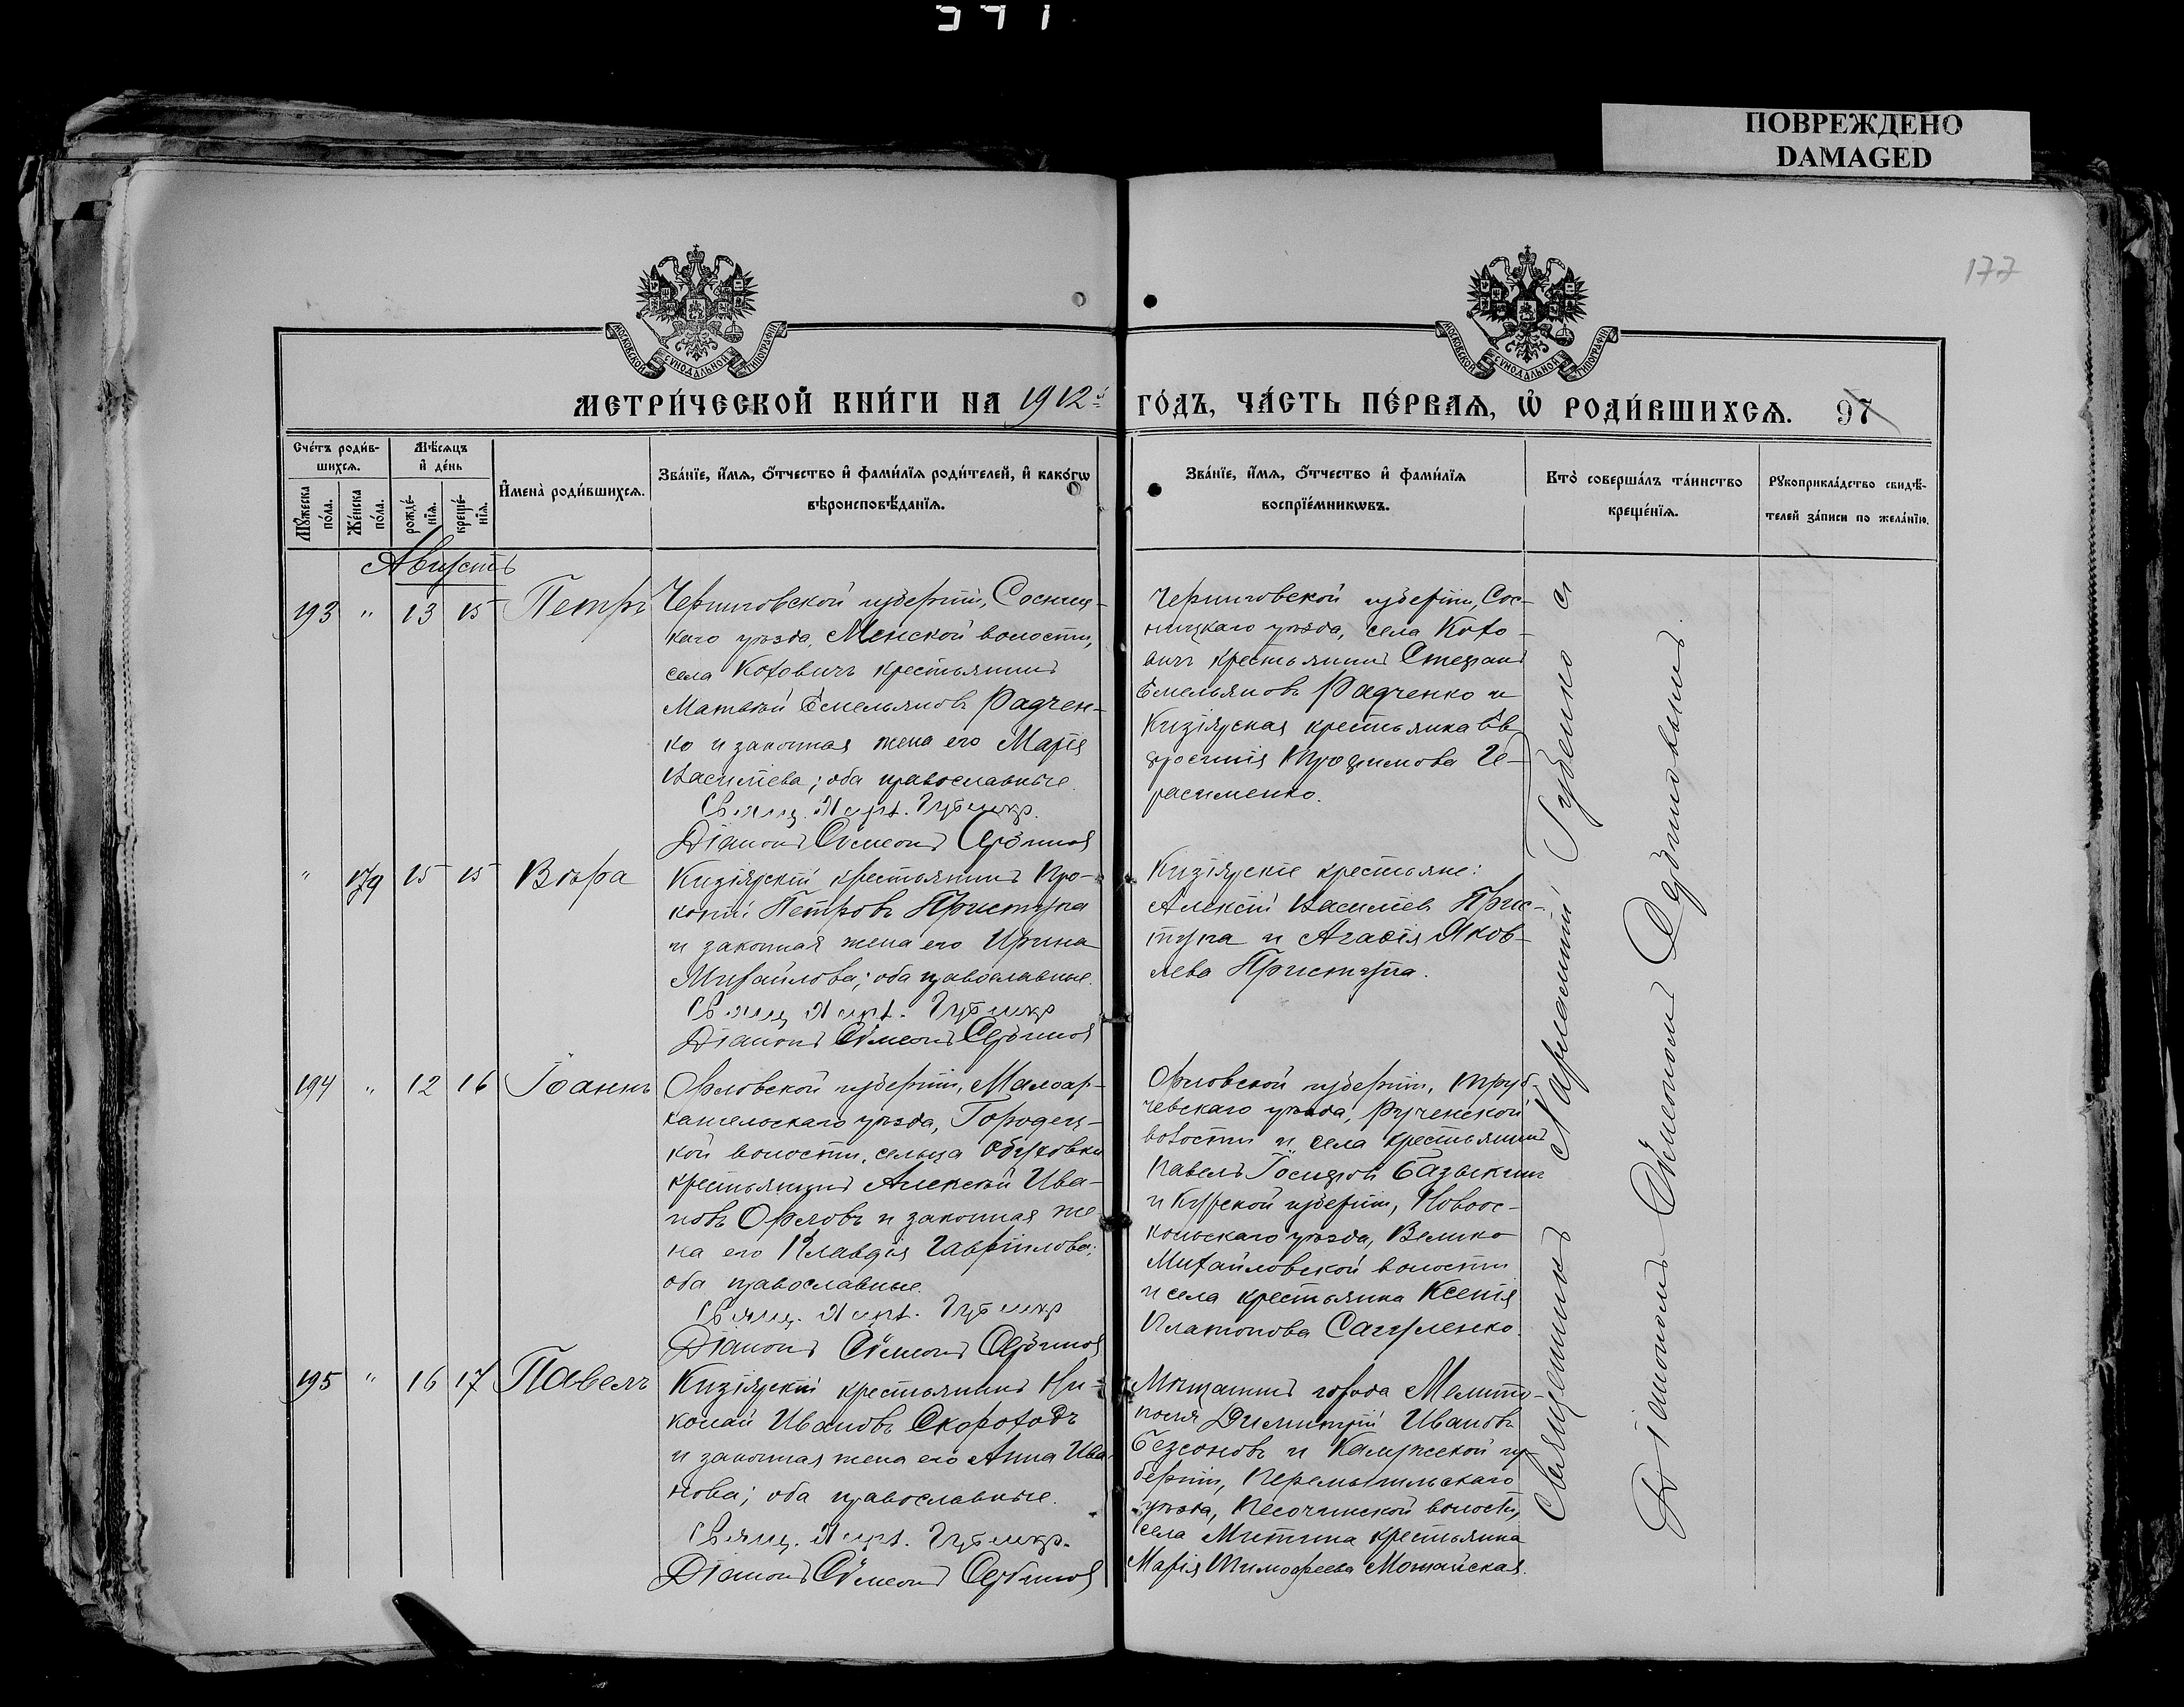 371
ПОВРЕЖДЕНО
DAMAGED
177
МОСКОВСКОЙ СѴНОДАЛЬНОЙ ТИПОГРАФІИ
МОСКОВСКОЙ СѴНОДАЛЬНОЙ ТИПОГРАФІИ
МЕТРИ́ЧЕСКОЙ КНИ́ГИ НА 1912й
ГО́ДЪ, ЧА́СТЬ ПЕ́РВАѦ, Ѡ҆ РОДИ́ВШИХСѦ. 97
Сче́тъ роди́в-
шихсѧ.
Мꙋ́жеска
по́ла.
Же́нска
по́ла.
Мѣ́сѧцъ
и҆ де́нь
рожде́-
нїѧ.
креще́-
нїѧ.
И҆мена̀ роди́вшихсѧ.
Зва́нїе, и҆́мѧ, ѻ҆́тчество и҆ фами́лїѧ роди́телей, и҆ како́гѡ
вѣроисповѣ́данїѧ.
Зва́нїе, и҆́мѧ, ѻ҆́тчество и҆ фами́лїѧ
воспрїе́мникѡвъ.
Кто̀ соверша́лъ та́инство
креще́нїѧ.
Рꙋкоприкла́дство свидѣ́-
телей за́писи по жела́нїю.
Августъ
193 " 13 15 Петръ
Черниговской губерніи, Сосниц-
каго уѣзда, Менской волости,
села Коховичъ крестьянинъ
Матѳей Емельяновъ Радчен-
ко и законная жена его Марія
Васильева; оба православные.
Свящ. Лавр. Губенко.
Діаконъ Сѵмеонъ Сербиновъ
Черниговской губерніи, Сос-
ницкаго уѣзда, села Кохо-
вичъ крестьянинъ Стефанъ
Емельяновъ Радченко и
Кизіярская крестьянка Ев-
фросинія Трофимова Ге-
расименко.
" 179 15 15 Вѣра
Кизіярскій крестьянинъ Про-
копій Петровъ Приступа
и законная жена его Ирина
Михайлова; оба православные.
Свящ. Лавр. Губенко
Діаконъ Сѵмеонъ Сербиновъ
Кизіярскіе крестьяне:
Алексій Василіев Прис-
тупа и Агаѳія Яков-
лева Приступа.
194 " 12 16 Іоаннъ
Орловской губерніи, Малоар-
хангельскаго уѣзда, Городец-
кой волости, сельца Обуховки
крестьянинъ Алексѣй Ива-
новъ Орловъ и законная же-
на его Клавдія Гавріилова;
оба православные.
Свящ. Лавр. Губенко
Діаконъ Сѵмеонъ Сербиновъ
Орловской губерніи, Труб-
чевскаго уѣзда,
волости и села крестьянинъ
Павелъ Іосифов Базыкинъ
и Курской губерніи, Новоос-
кольскаго уѣзда, Велико-
Михайловской волости
и села крестьянка Ксенія
Платонова
195 " 16 17 Павелъ
Кизіярскій крестьянинъ Ни-
колай Ивановъ Скороходъ
и законная жена его Анна Ива-
нова; оба православные.
Свящ. Лавр. Губенко.
Діаконъ Сѵмеонъ Сербиновъ
Мѣщанинъ города Мелито-
поля Димитрій Ивановъ
Безсоновъ и Калужской гу-
берніи, Перемышльскаго
уѣзда, Песоченской волости,
села Митина крестьянка
Марія Тимоѳеева Можайская.
Священникъ Лаврентій Губенко съ
Діакономъ Сѵмеономъ Сербиновымъ.